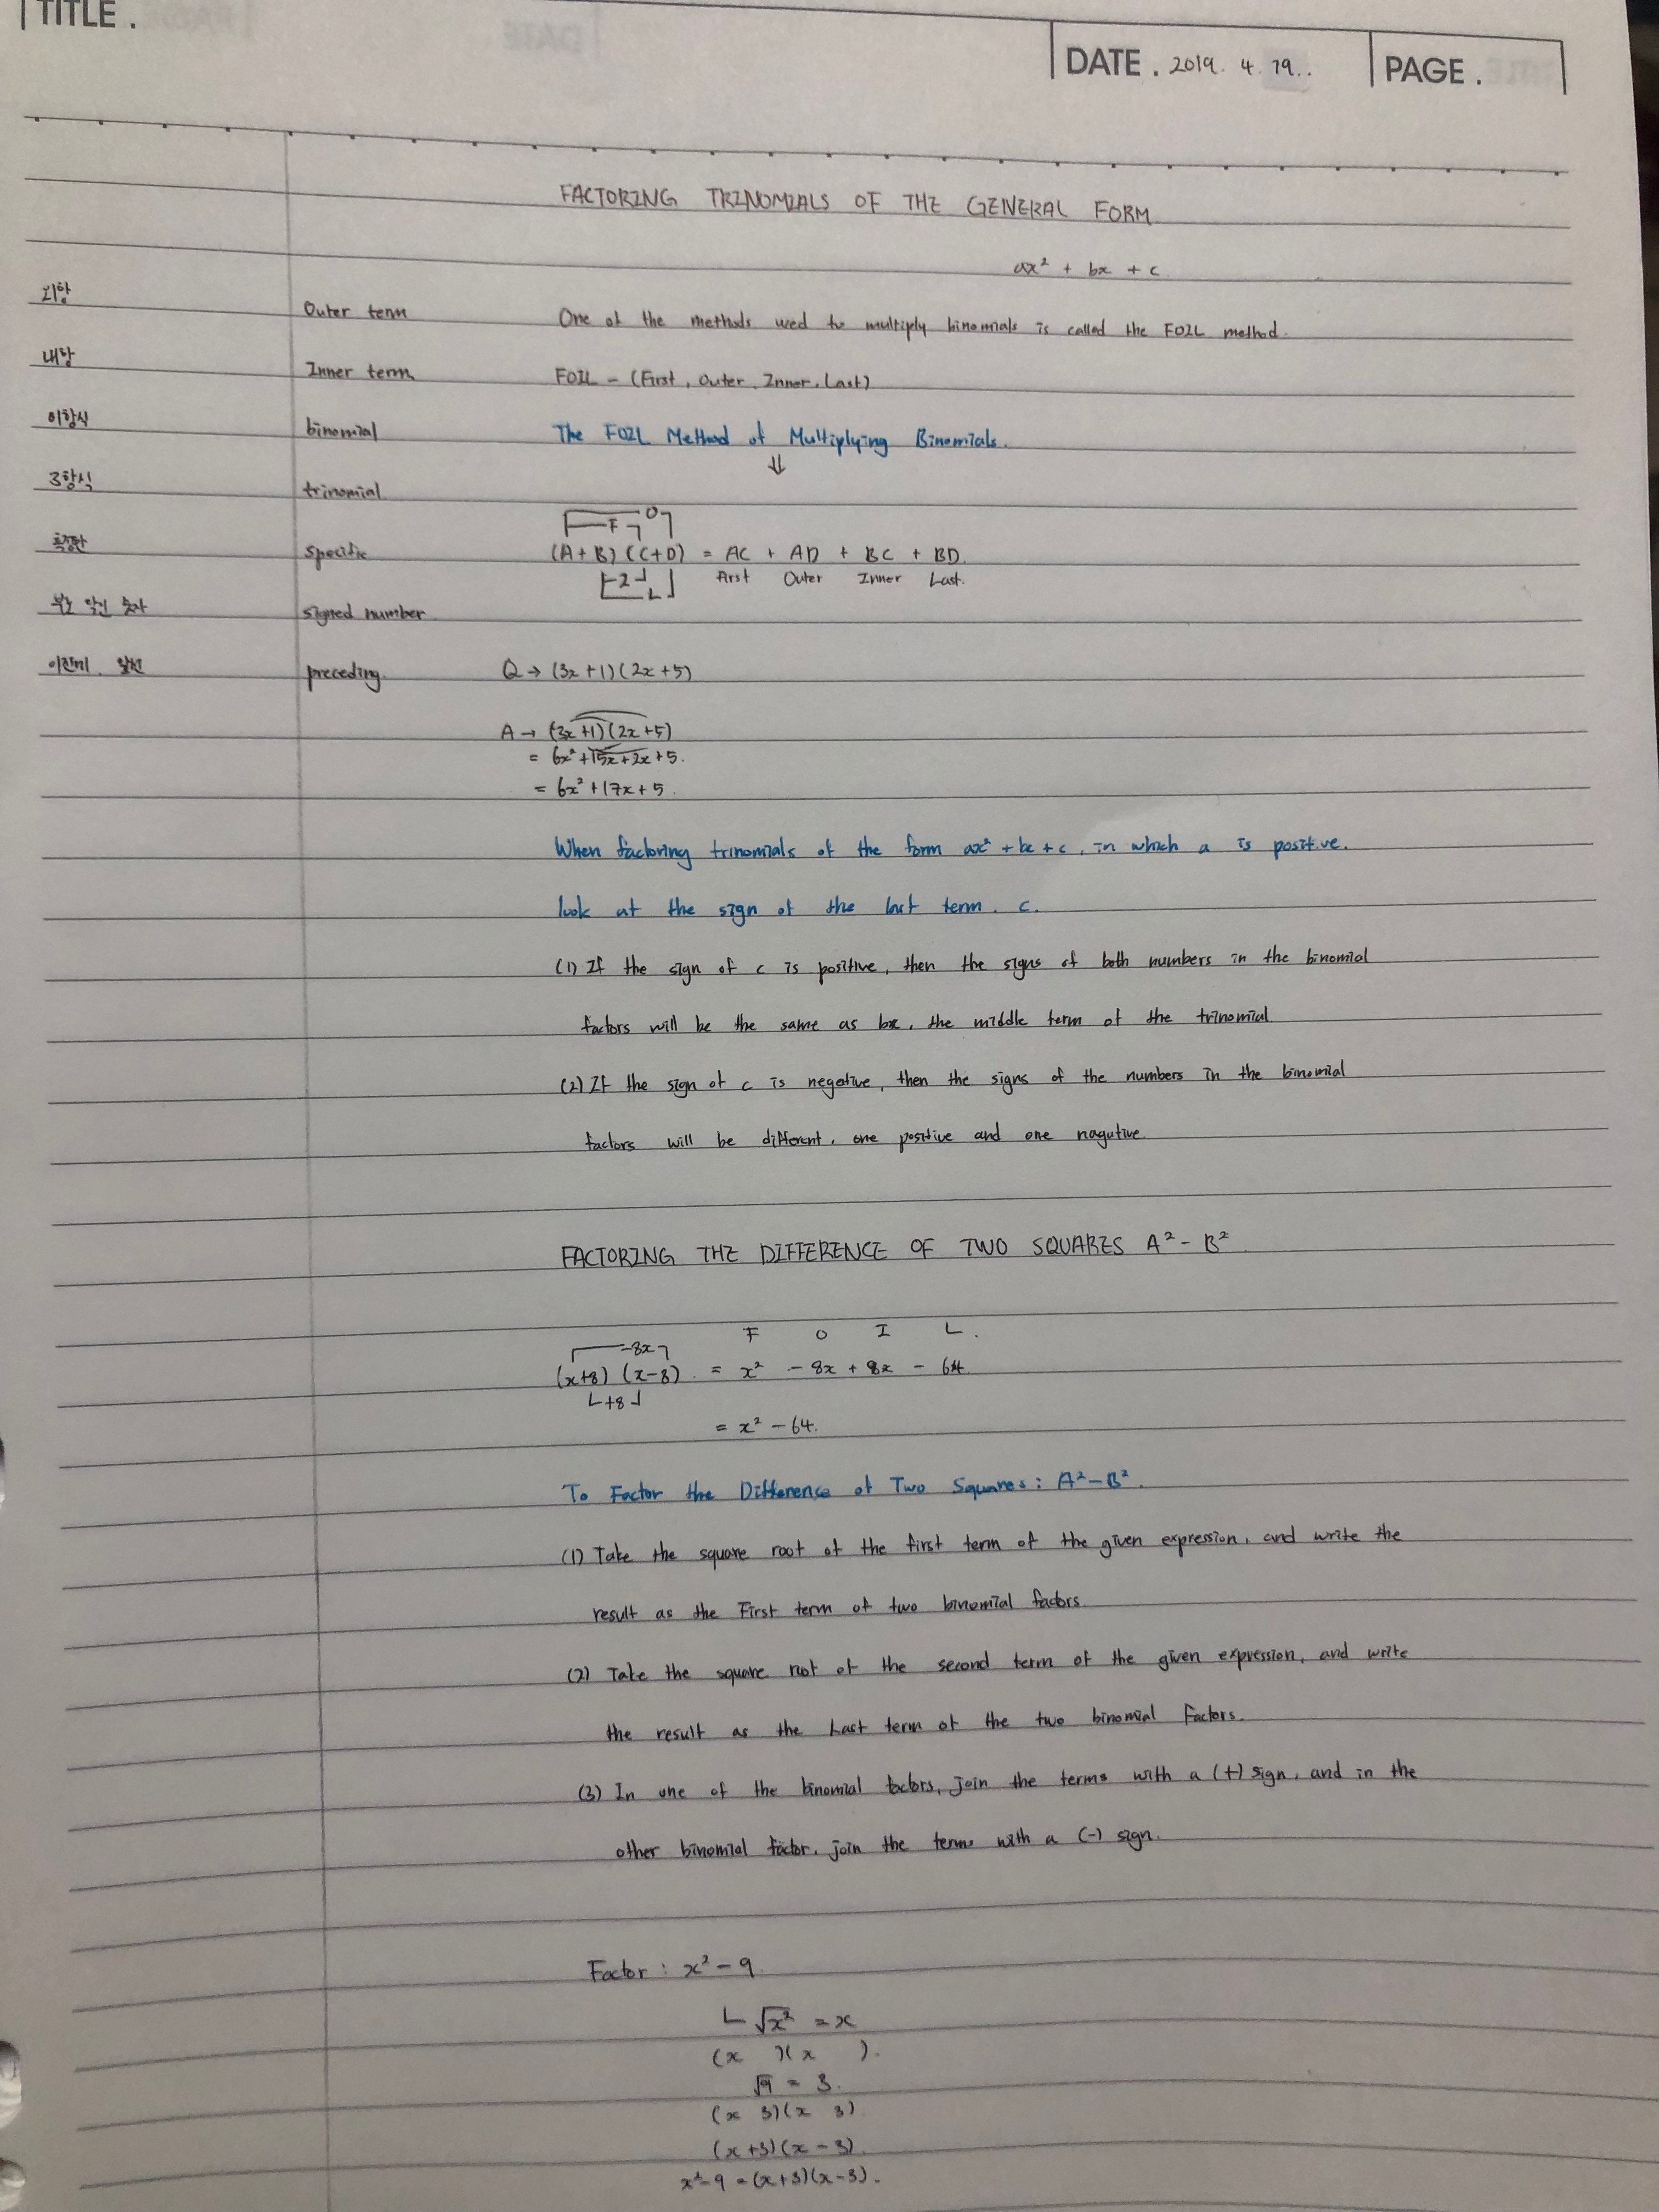 TITLE .
DATE . 2019. 4. 19..
PAGE .
FACTORING TRINOMIALS OF THE GENERAL FORM
ax² + bx + c
외항 Outer term One of the methods used to multiply binomials is called the FOIL method.
내항 Inner term FOIL - (First, Outer, Inner, Last)
이항식 binomial The FOIL Method of Multiplying Binomials.
⇓
3항식 trinomial
F O
특정한 specific (A+B)(C+D) = AC + AD + BC + BD
I L First Outer Inner Last.
부호 닥린 숫자 signed number
이전에, 앞선 preceding Q → (3x+1)(2x+5)
A → (3x+1)(2x+5)
= 6x²+15x+2x+5.
= 6x²+17x+5.
When factoring trinomials of the form ax² + bx + c, in which a is positive.
look at the sign of the last term. c.
(1) If the sign of c is positive, then the signs of both numbers in the binomial
factors will be the same as bx, the middle term of the trinomial
(2) If the sign of c is negative, then the signs of the numbers in the binomial
factors will be different, one positive and one nagative.
FACTORING THE DIFFERENCE OF TWO SQUARES A² - B²
F O I L.
-8x
(x+8)(x-8). = x² - 8x + 8x - 64.
+8
= x² - 64.
To Factor the Difference of Two Squares: A²-B².
(1) Take the square root of the first term of the given expression, and write the
result as the First term of two binomial factors.
(2) Take the square root of the second term of the given expression, and write
the result as the Last term of the two binomial Factors.
(3) In one of the binomial factors, join the terms with a (+) sign, and in the
other binomial factor, join the terms with a (-) sign.
Factor : x² - 9.
√x² = x
(x )(x ).
√9 = 3.
(x 3)(x 3)
(x+3)(x-3)
x²-9 = (x+3)(x-3).